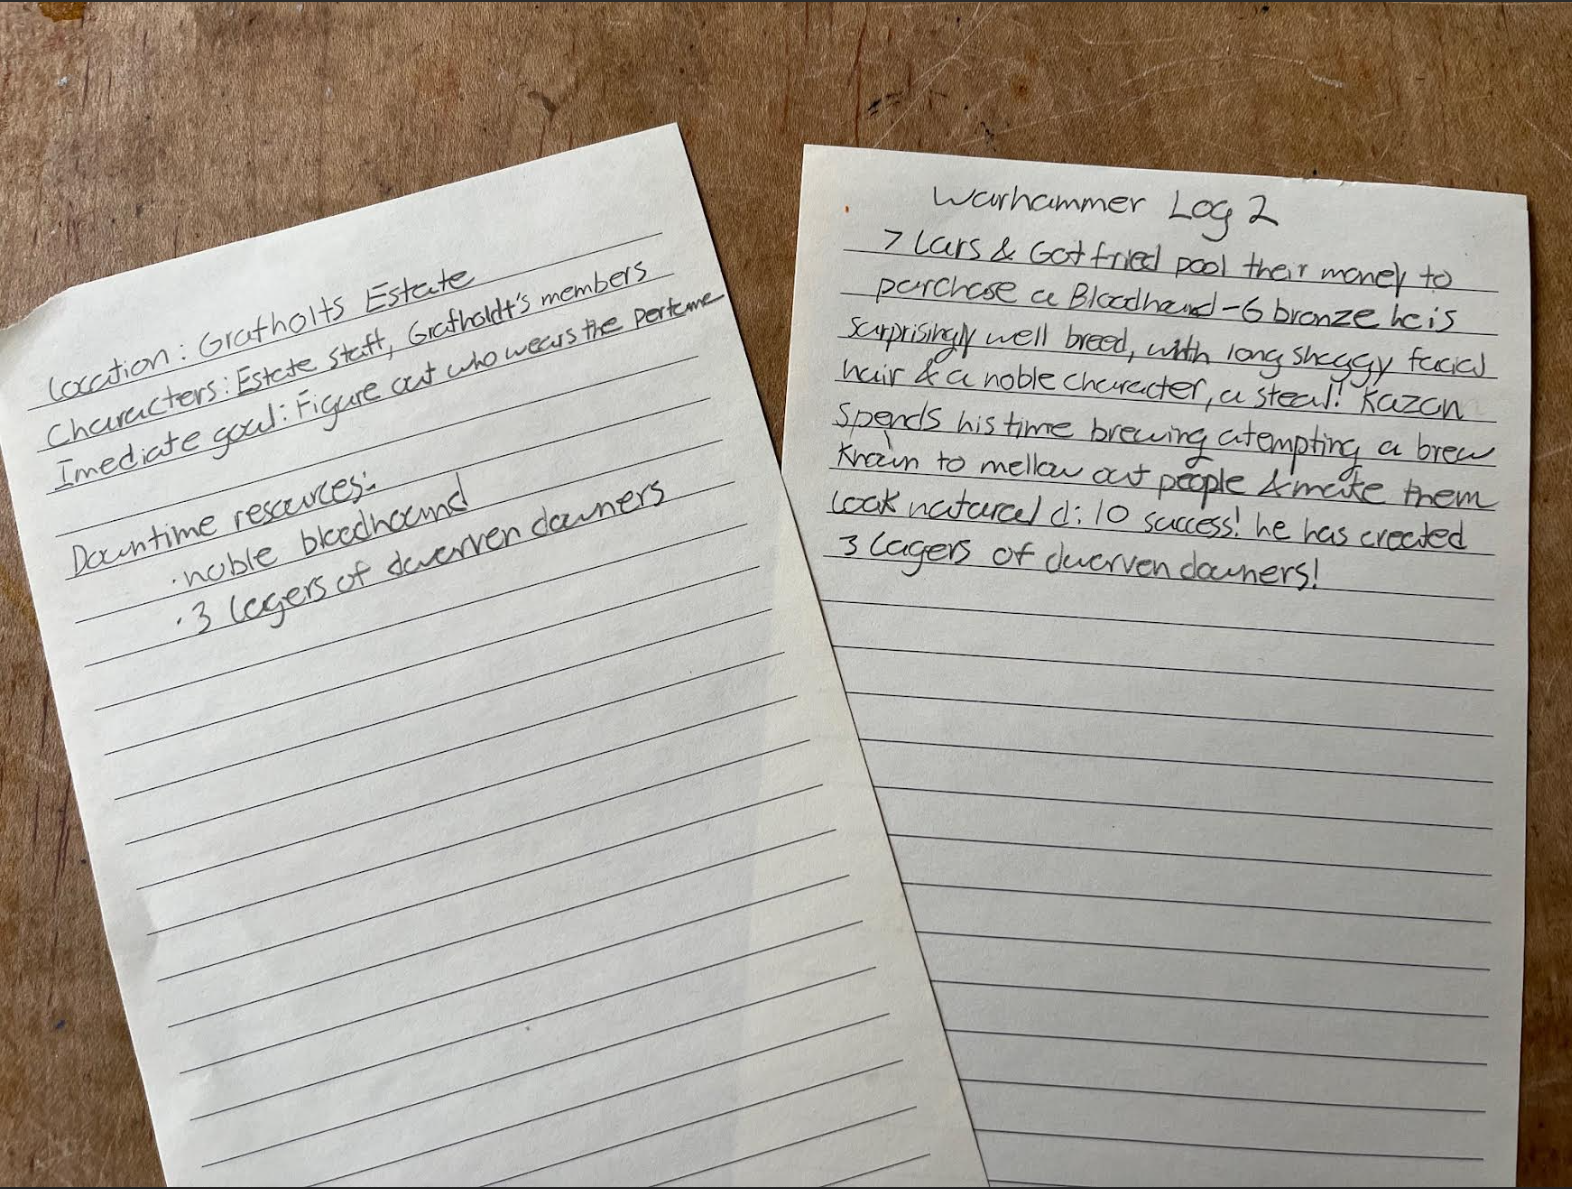 Location: Grafholts Estate
Characters: Estate staff, Grafholdt's members
Imediate goal: Figure out who wears the perfume
Downtime resources:
· noble bloodhound
· 3 lagers of dwerven downers
Warhammer Log 2
7 Lars & Gotfried pool their money to
purchase a Bloodhound - 6 bronze he is
surprisingly well breed, with long shaggy facial
hair & a noble character, a steal! Kazan
spends his time brewing atempting a brew
known to mellow out people & make them
look natural d:10 success! he has created
3 lagers of dwerven downers!